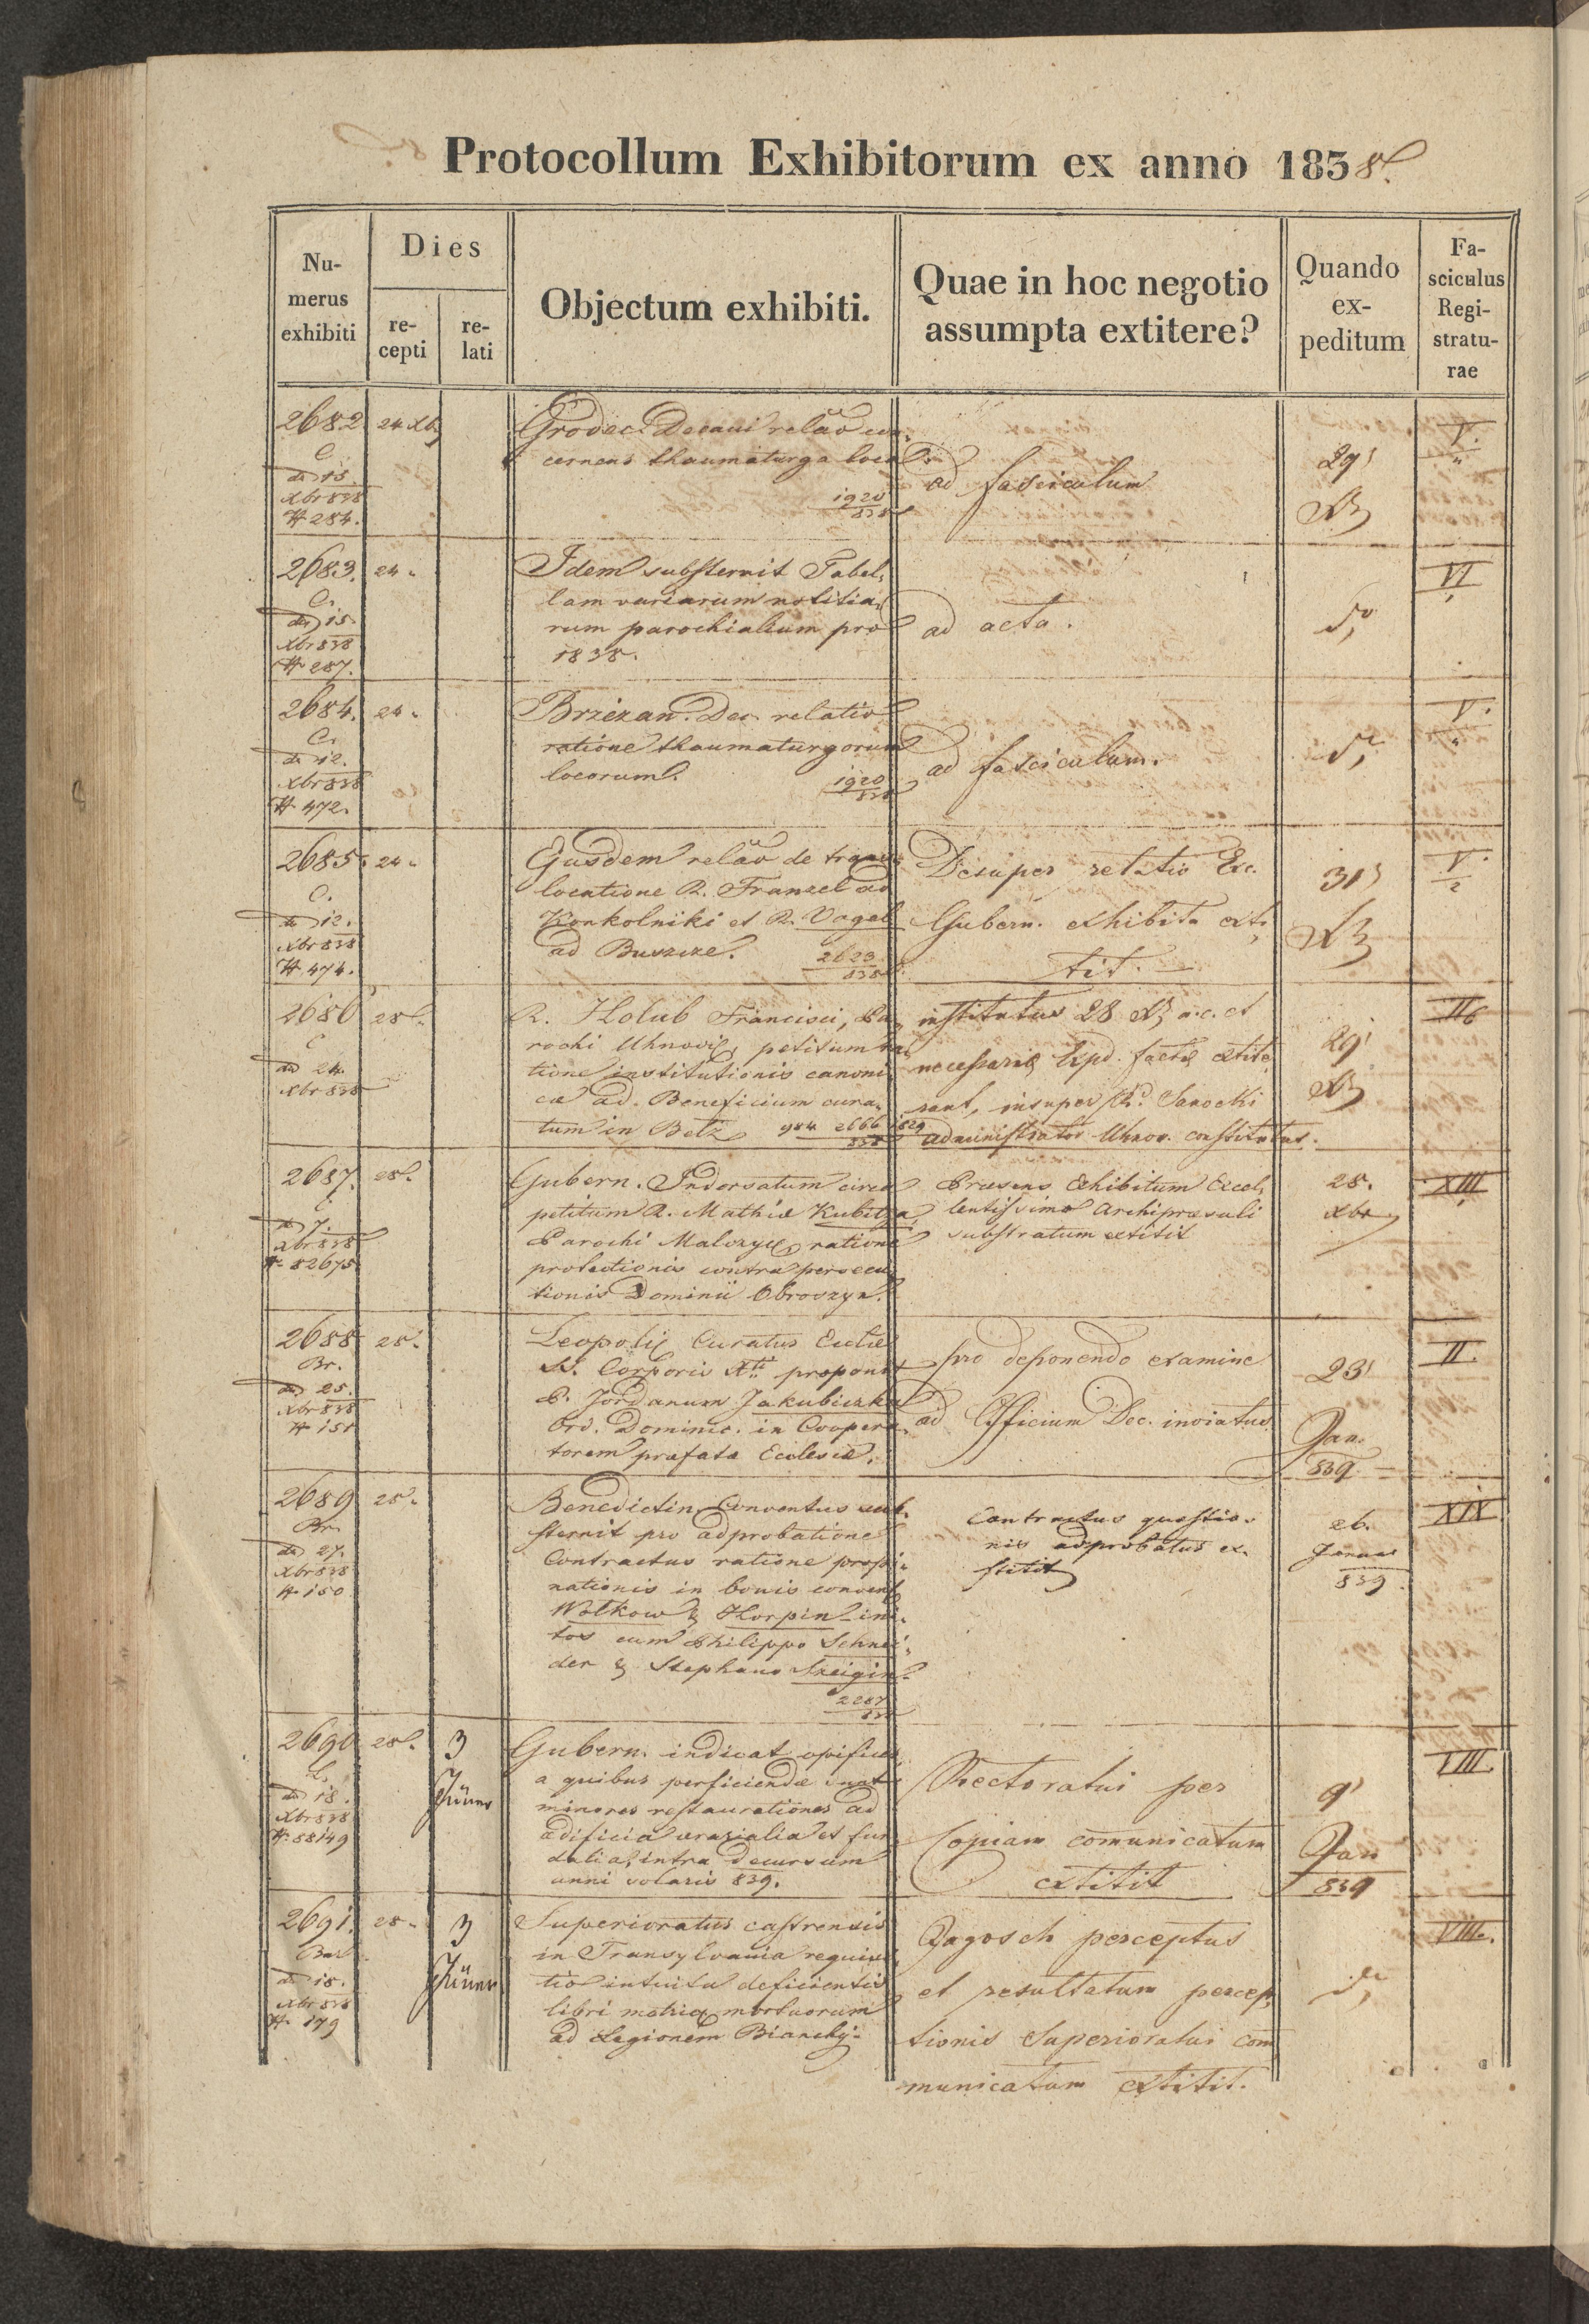 Protocollum Exhibitorum ex anno 1838.
Nu-
merus
exhibiti
Dies
re-
cepti
re-
lati
Objectum exhibiti.
Quae in hoc negotio
assumpta extitere?
Quando
ex-
peditum
Fa-
sciculus
Regi-
stratu-
rae
2682
C.
dd 15.
Xbr 838
# 284.
24 Xb
Grodec. Decani relāo con-
cernens thaumaturga loca
1920
838
ad fasciculum
29
Xb
V.
2683.
C.
dd 15.
Xbr 838
# 287.
24.
Idem substernit Tabel-
lam variarum notitia-
rum parochialium pro
1838.
ad acta.
VI
2684.
C.
dd 12.
Xbr 838
# 472.
24.
Brzezan. Dec. relatio
ratione thaumaturgorum
locorum.
1920
838
ad fasciculum.
V.
2685.
C.
dd 12.
Xbr 838
# 474.
24.
Ejusdem relāo de trans-
locatione R. Franzel ad
Konkolniki et R. Vogel
ad Buszcze.
2623
838
Desuper relatio Exc.
Gubern. exhibita exti-
tit.
31
Xb
V.
2
2686
C
dd 24.
Xbr 838
28.
R. Holub Francisci, Pa-
rochi Uhnoviæ, petitum ra-
tione institutionis canoni-
cæ ad Beneficium cura-
tum in Betz 984 2666 829
838
institutus 28 Xb a.c. et
necessariæ Expd. factæ extite-
rant, insuper R. Sanocki
administrator Uhnov. constitutus.
29
Xb
II
2687.
C.
dd 7.
Xbr 838
# 82675
28.
Gubern. Indorsatum circa
petitum R. Mathiæ Kubitza
Parochi Malczyce ratione
protectionis contra persecu-
tionis Dominii Obroszyn.
Præsens Exhibitum Excel-
lentissimo Archipræsuli
substratum extitit
28.
Xbr
XIII
2688
Br.
dd 25.
Xbr 838
# 151
28.
Leopoliæ Curatus Ecclæ
SS. Corporis Xti proponit
P. Jordanum Jakubiczka
Ord. Dominic. in Coopera-
torem præfatæ Ecclesiæ.
pro deponendo examine
ad Officium Dec. inviatus
23
Jan.
839
II.
2689
Br.
dd 27.
Xbr 838
# 150
28.
Benedictin. Conventus sub-
sternit pro adprobatione
Contractus ratione propi-
nationis in bonis convent
Wołkow & Horpin ini-
tos cum Philippo Schnei-
der & Stephano Szeigin.
2287
838
Contractus quæstio-
nis adprobatus ex-
stitit
26.
Januar
839.
XIX
2690
dd 18.
Xbr 838
# 88149
28.
3
Jäner
Gubern. indicat opifices
a quibus perficiendæ sunt
minores restaurationes ad
ædificia ærarialia et fun-
dalia, intra decursum
anni solaris 839.
Rectoratui per
Copiam comunicatum
extitit
9
Jan
839
VIII.
2691.
dd 15.
Xbr 838
# 179
28.
3
Jäner
Superioratus castrensis
in Transylvania requisi-
tio intuitu deficientis
libri matricæ mortuorum
ad Legionem Bianchy.
Jagosch perceptus
et resultatum percep-
tionis Superioratui com
municatum extitit.
VIII.